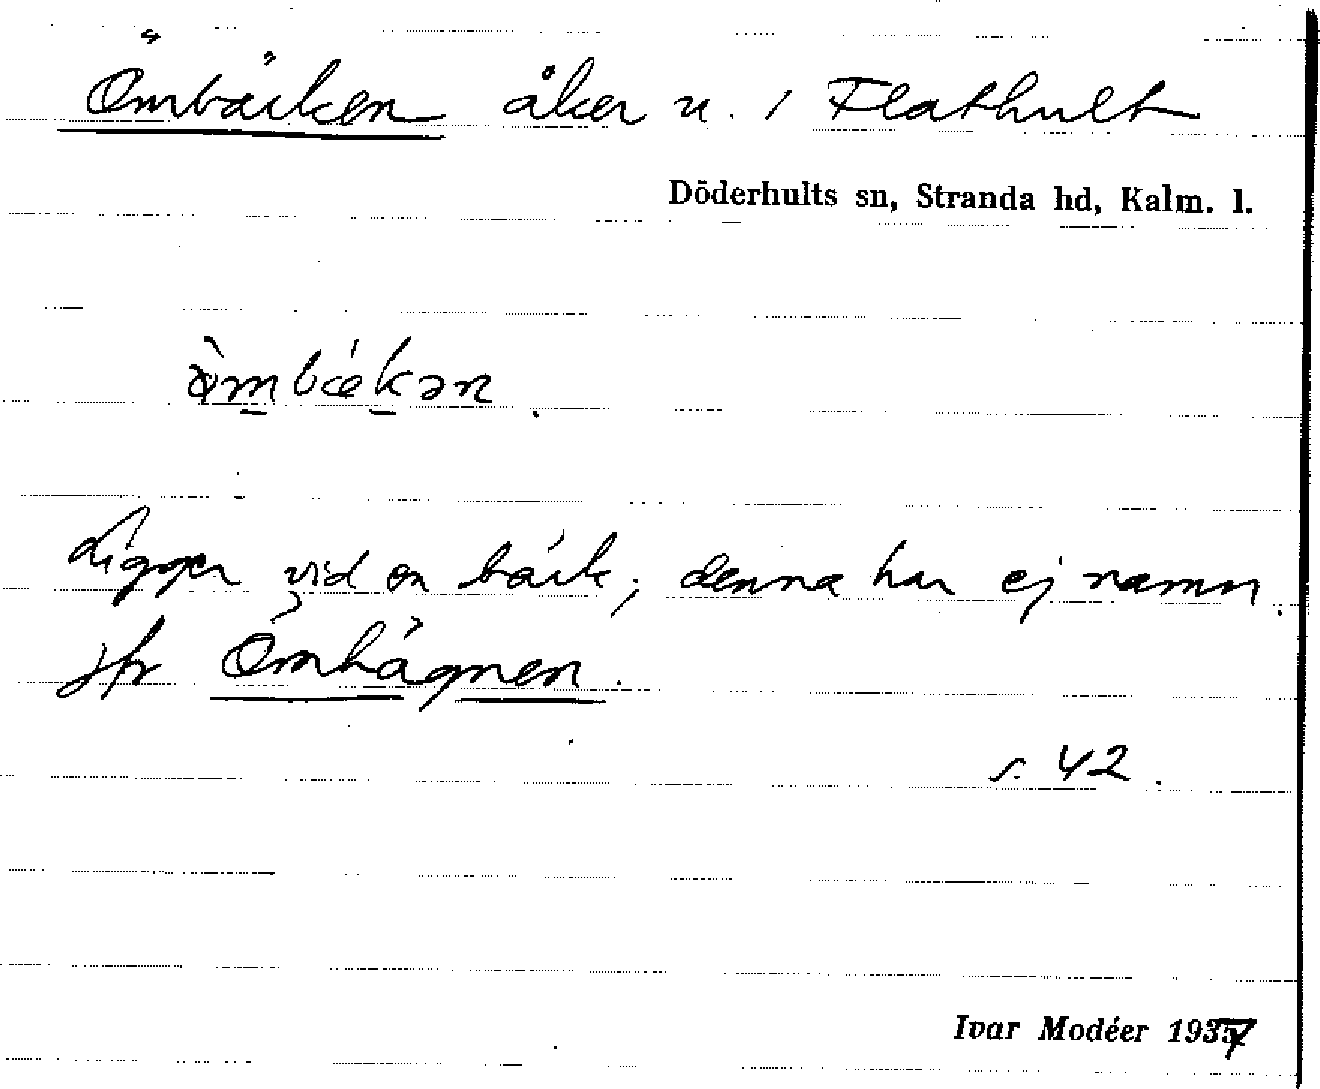 Ömbäcken åker u. / Flathult
Döderhults sn, Stranda hd, Kalm. l.
Ligger vid en bäck; denna har ej namn.
jfr Ömhägnen.
s. 42.
Ivar Modéer 1937